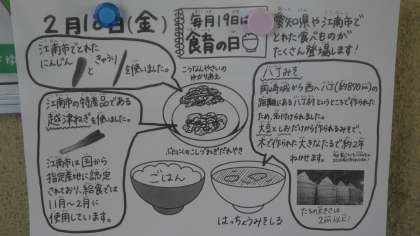 2月18日(金)
毎月19日は
食育の日
愛知県や江南市で
とれた食べものが
たくさん登場します!
江南市でとれた
にんじん と きゅうり を使いました。
こうなんやさいの
ゆかりあえ
江南市の特産品である
越津ねぎを使いました。
江南市は国から
指定産地に認定
されており、給食では
11月〜2月に
使用しています。
ぶたにくのこしづねぎだれやき
ごはん
はっちょうみそしる
八丁みそ
岡崎城から西へ八丁(約870m)の
距離にある八丁村というところで作られた
ため、名付けられました。
大豆としおだけから作られるみそで、
木で作られた大きなたるで約2年
ねかせます。
たるの大きさは
2m以上!